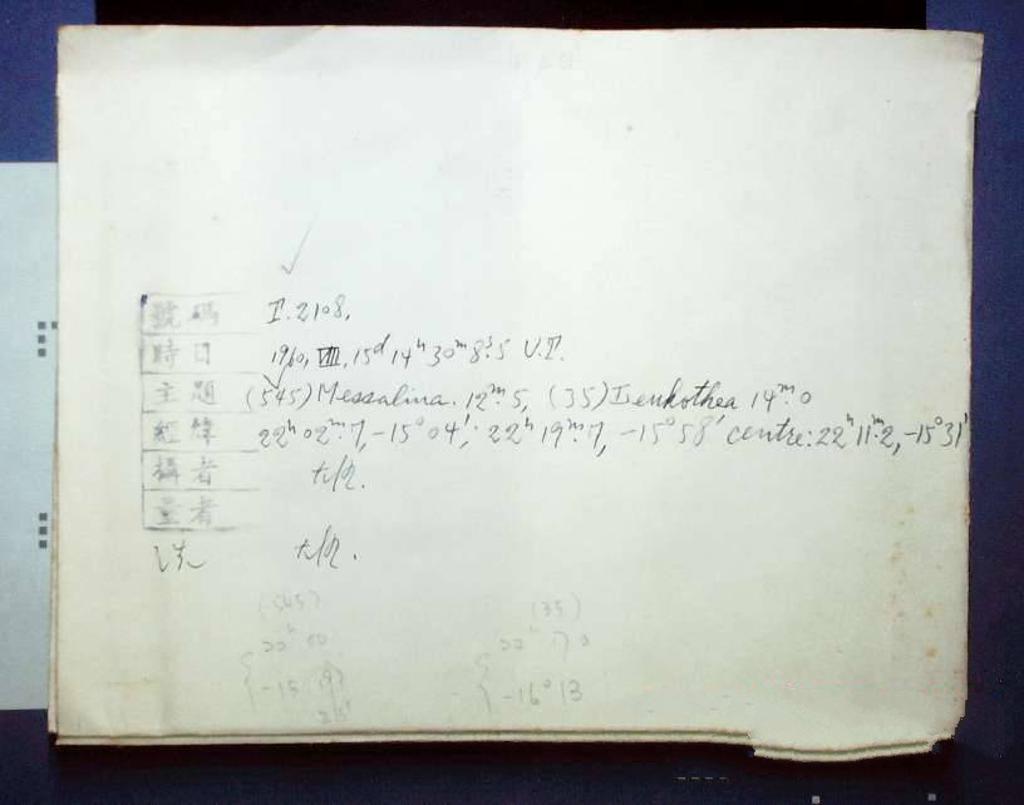 號碼 I.2108.
時日 1960, VIII, 15ᵈ 14ʰ 30ᵐ 8ˢ.5 U.T.
主題 (545) Messalina. 12ᵐ.5, (35) Leukothea 14ᵐ.0
經緯 22ʰ 02ᵐ.7, -15° 04'; 22ʰ 19ᵐ.7, -15° 58' centre: 22ʰ 11ᵐ.2, -15° 31'
攝者
量者
洗
(545) (35)
-16° 13